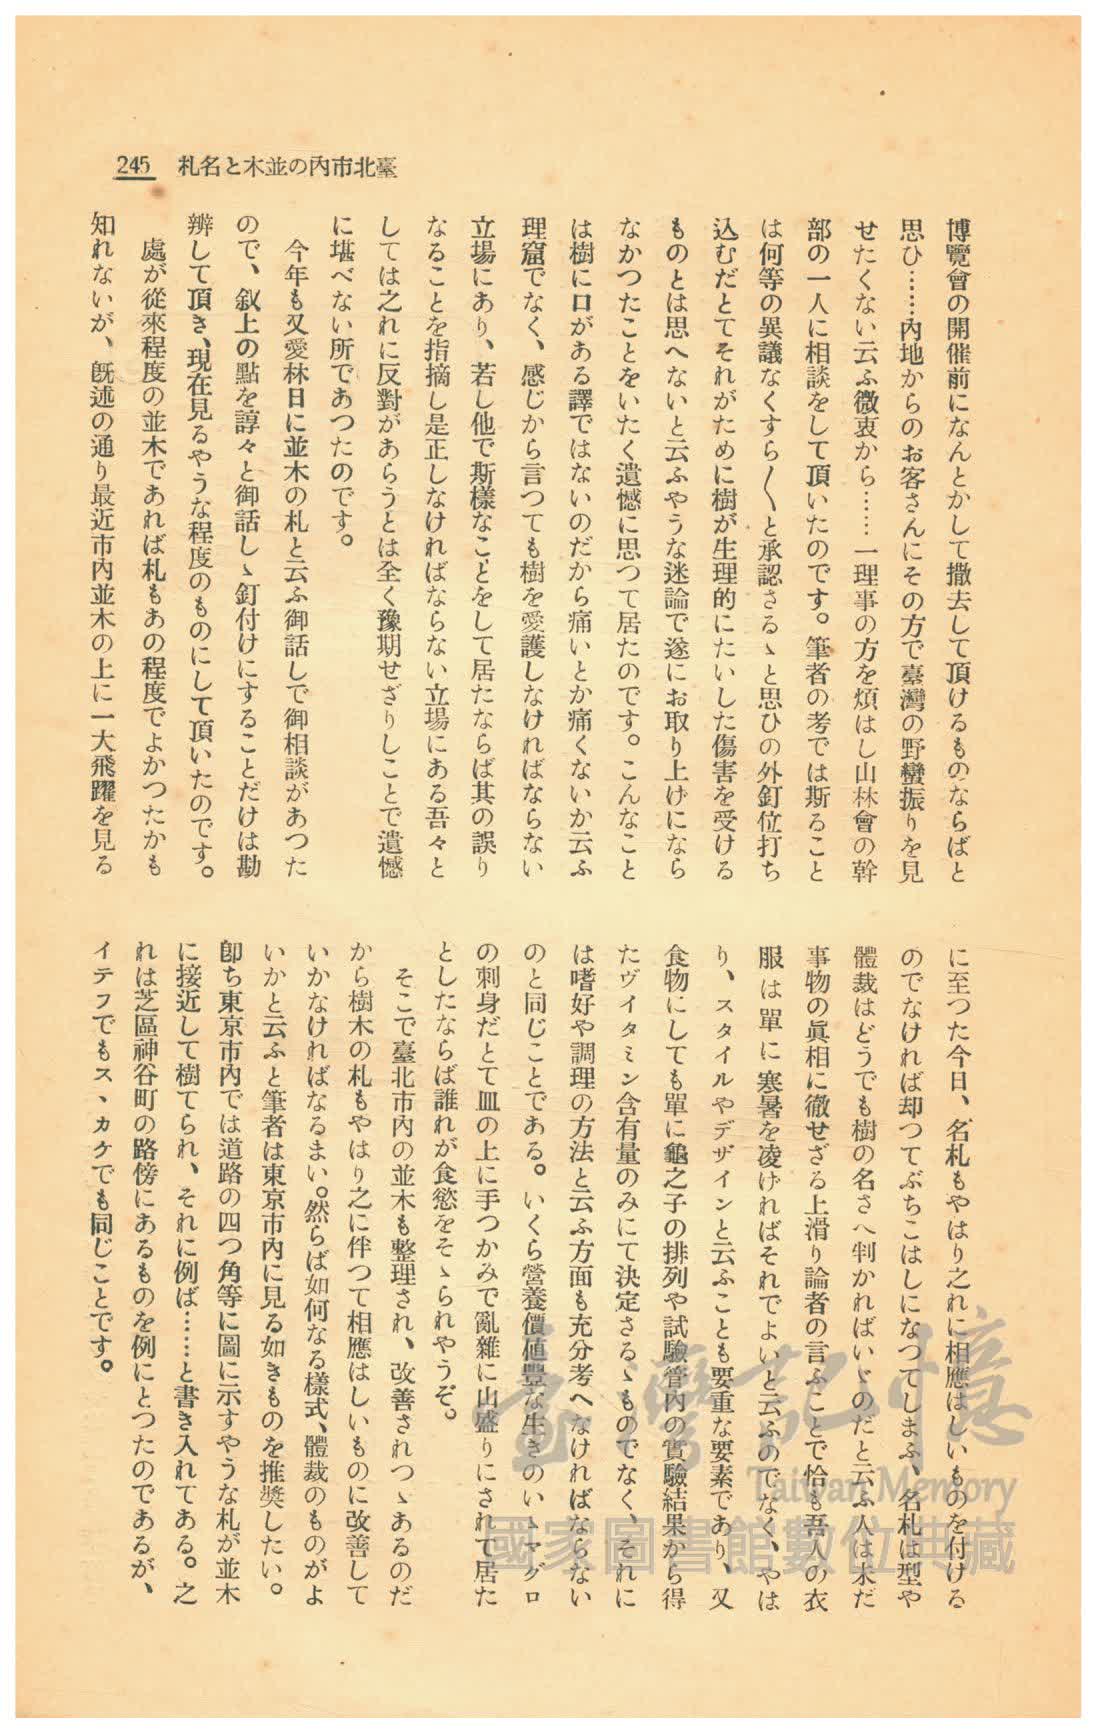 臺北市內の並木と名札 245
博覽會の開催前になんとかして撒去して頂けるものならばと
思ひ……內地からのお客さんにその方で臺灣の野蠻振りを見
せたくない云ふ微衷から……一理事の方を煩はし山林會の幹
部の一人に相談をして頂いたのです。筆者の考では斯ること
は何等の異議なくすら〱と承認さるゝと思ひの外釘位打ち
込むだとてそれがために樹が生理的にたいした傷害を受ける
ものとは思へないと云ふやうな迷論で遂にお取り上げになら
なかつたことをいたく遺憾に思つて居たのです。こんなこと
は樹に口がある譯ではないのだから痛いとか痛くないか云ふ
理窟でなく、感じから言つても樹を愛護しなければならない
立場にあり、若し他で斯樣なことをして居たならば其の誤り
なることを指摘し是正しなければならない立場にある吾々と
しては之れに反對があらうとは全く豫期せざりしことで遺憾
に堪べない所であつたのです。
今年も又愛林日に並木の札と云ふ御話しで御相談があつた
ので、敍上の點を諄々と御話しゝ釘付けにすることだけは勘
辨して頂き、現在見るやうな程度のものにして頂いたのです。
處が從來程度の並木であれば札もあの程度でよかつたかも
知れないが、旣述の通り最近市內並木の上に一大飛躍を見る
に至つた今日、名札もやはり之れに相應はしいものを付ける
のでなければ却つてぶちこはしになつてしまふ、名札は型や
體裁はどうでも樹の名さへ判かればいゝのだと云ふ人は未だ
事物の眞相に徹せざる上滑り論者の言ふことで恰も吾人の衣
服は單に寒暑を凌げればそれでよいと云ふのでなく、やは
り、スタイルやデザインと云ふことも要重な要素であり、又
食物にしても單に龜之子の排列や試驗管內の實驗結果から得
たヴイタミン含有量のみにて決定さるゝものでなく、それに
は嗜好や調理の方法と云ふ方面も充分考へなければならない
のと同じことである。いくら營養價値豐な生きのいゝマグロ
の刺身だとて皿の上に手つかみで亂雜に山盛りにされて居た
としたならば誰れが食慾をそゝられやうぞ。
そこで臺北市內の並木も整理され、改善されつゝあるのだ
から樹木の札もやはり之に伴つて相應はしいものに改善して
いかなければなるまい。然らば如何なる樣式、體裁のものがよ
いかと云ふと筆者は東京市內に見る如きものを推奬したい。
卽ち東京市內では道路の四つ角等に圖に示すやうな札が並木
に接近して樹てられ、それに例ば……と書き入れてある。之
れは芝區神谷町の路傍にあるものを例にとつたのであるが、
イテフでもスヽカケでも同じことです。
臺灣記憶
Taiwan Memory
國家圖書館數位典藏